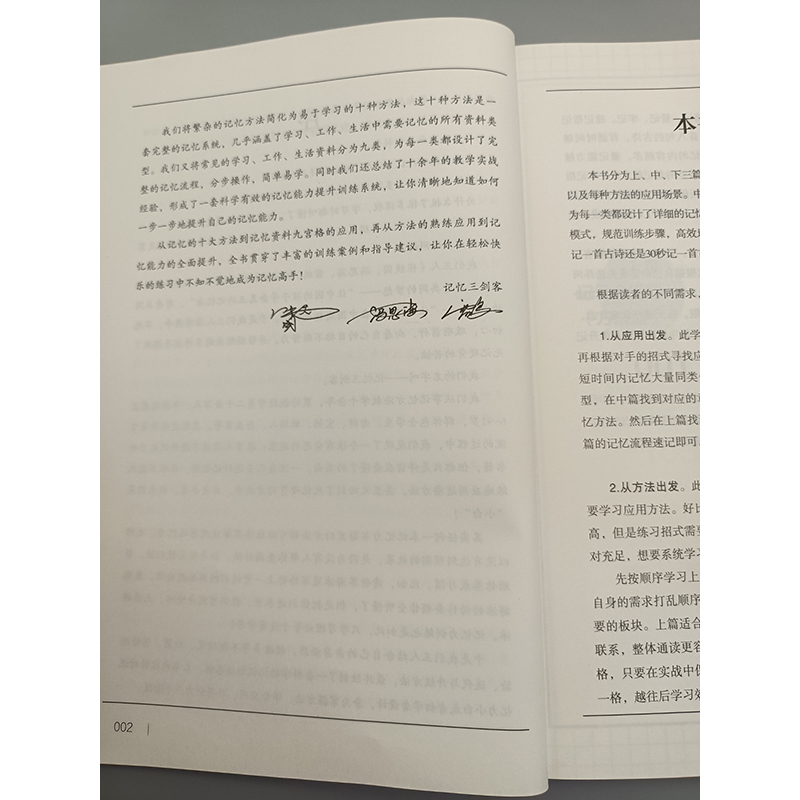 我们将繁杂的记忆方法简化为易于学习的十种方法，这十种方法是一
套完整的记忆系统，几乎涵盖了学习、工作、生活中需要记忆的所有资料类
型。我们又将常见的学习、工作、生活资料分为九类，为每一类都设计了完
整的记忆流程，分步操作，简单易学。同时我们还总结了十余年的教学实战
经验，形成了一套科学有效的记忆能力提升训练系统，让你清晰地知道如何
一步一步地提升自己的记忆能力。
从记忆的十大方法到记忆资料九宫格的应用，再从方法的熟练应用到记
忆能力的全面提升，全书贯穿了丰富的训练案例和指导建议，让你在轻松快
乐的练习中不知不觉地成为记忆高手！
记忆三剑客
002
本
本书分为上、中、下三篇
以及每种方法的应用场景。中
为每一类都设计了详细的记忆
模式，规范训练步骤，高效地
记一首古诗还是30秒记一首
根据读者的不同需求，
1.从应用出发。此学
再根据对手的招式寻找应
短时间内记忆大量同类
型，在中篇找到对应的
忆方法。然后在上篇找
篇的记忆流程速记即可
2.从方法出发。此
要学习应用方法。好比
高，但是练习招式需
对充足，想要系统学
先按顺序学习上
自身的需求打乱顺序
要的板块。上篇适合
联系，整体通读更容
格，只要在实战中
一格，越往后学习效